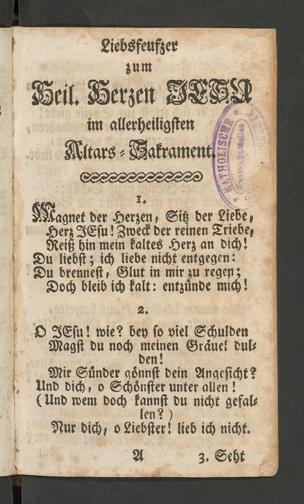 Liebsſeufzer
zum
Heil. Herzen JESU
im allerheiligſten
Altars-Sakrament.
1.
Magnet der Herzen, Sitz der Liebe,
Herz JEſu! Zweck der reinen Triebe,
Reiß hin mein kaltes Herz an dich!
Du liebſt; ich liebe nicht entgegen:
Du brenneſt, Glut in mir zu regen;
Doch bleib ich kalt: entzünde mich!
2.
O JEſu! wie? bey ſo viel Schulden
Magſt du noch meinen Gräuel dul-
den!
Mir Sünder gönnſt dein Angeſicht?
Und dich, o Schönſter unter allen!
(Und wem doch kannſt du nicht gefal-
len?)
Nur dich, o Liebſter! lieb ich nicht.
A 3. Seht
KATHOLISCHE